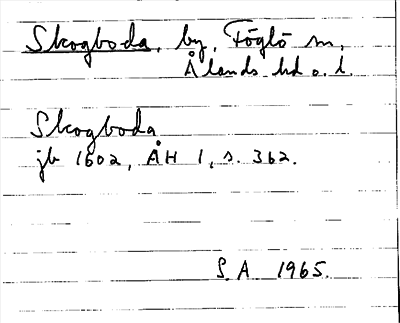 Skogboda, by, Föglö sn,
Ålands hd o. l.
Skogboda
jb 1602, ÅH 1, s. 362.
S.A 1965.